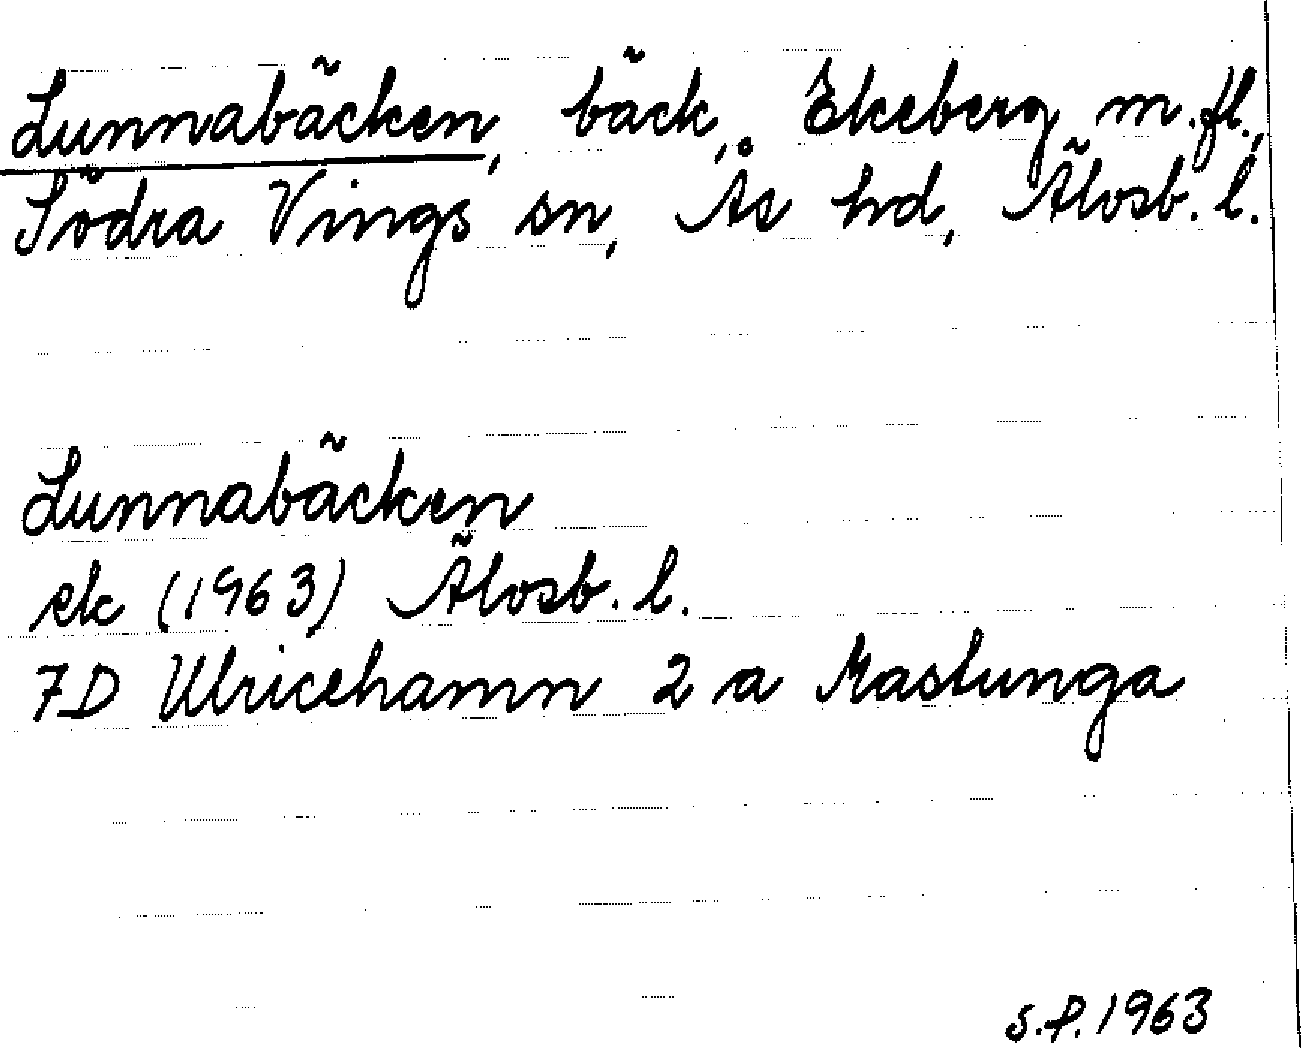 Lunnabäcken, bäck, Ekeberg m.fl.,
Södra Vings sn, Ås hd, Älvsb. l.
Lunnabäcken
ek (1963) Älvsb. l.
7D Ulricehamn 2 a Mastunga
S.P. 1963